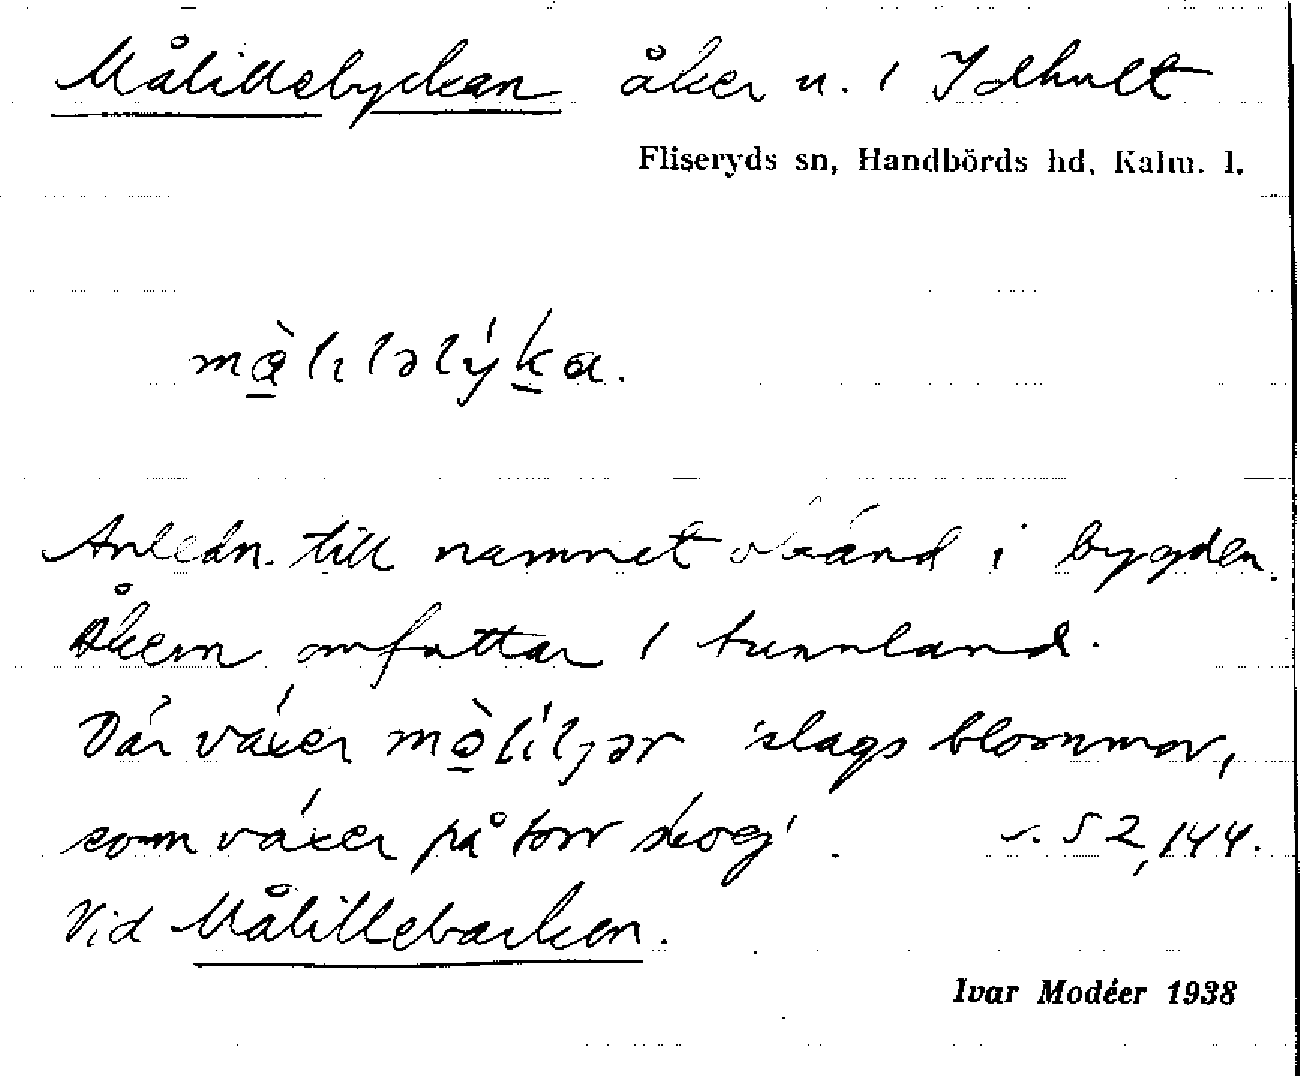 Målillelyckan åker u. 1 Idhult
Fliseryds sn, Handbörds hd, Kalm. l.
må̀lıləlýka.
Anledn. till namnet okänd i bygden.
Åkern omfattar 1 tunnland.
Där växer mø̀líljər 'slags blommor,
som växer på torr skog'. s. 52, 144.
Vid Målillebacken.
Ivar Modéer 1938